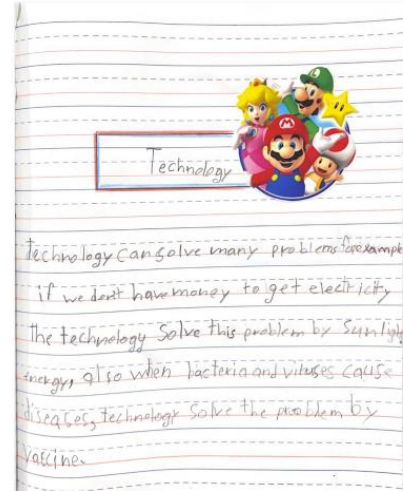 Technology
Technology can solve many problems forexample
if we don't have money to get electricity
the technology Solve this problem by Sun light
energy, also when bacteria and viruses cause
diseases, technology solve the problem by
vaccine.